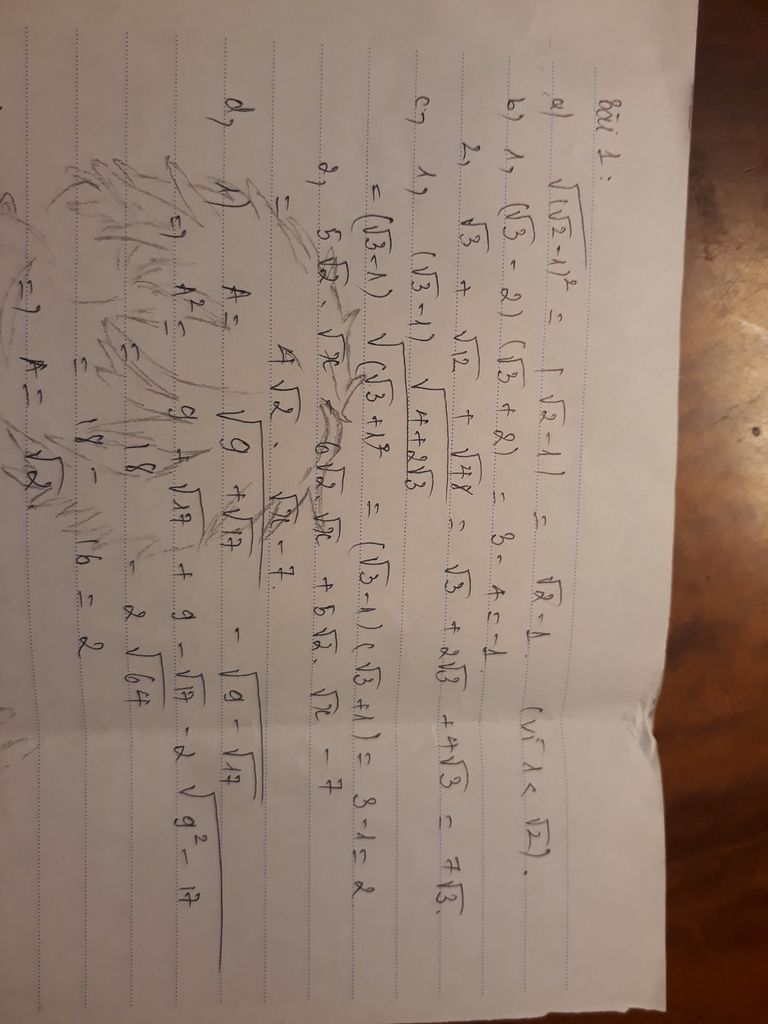 Bài 1:
a) √(√2-1)² = |√2-1| = √2-1. (vì 1 < √2).
b, 1, (√3 - 2) (√3 + 2) = 3 - 4 = -1
2, √3 + √12 + √48 = √3 + 2√3 + 4√3 = 7√3.
c, 1, (√3-1) √4+2√3
= (√3-1) √(√3+1)² = (√3-1) (√3+1) = 3-1=2
2, 5√2. √x - 6√2.√x + 5√2. √x - 7
= 4√2. √x - 7.
d, 1) A = √9+√17 - √9-√17
=) A² = 9 + √17 + 9 - √17 - 2 √9² - 17
= 18 - 2 √64
= 18 - 16 = 2
=) A = √2